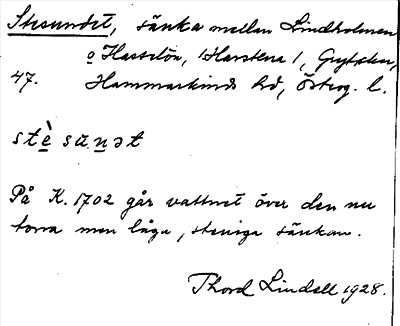 Stesundet, sänka mellan Lindholmen
o Hasselön, (Harstena), Gryts skn,
47. Hammarkinds hd, Österg. l.
stè sundət
På K. 1702 går vattnet över den nu
torra men låga, steniga sänkan.
Thord Lindell 1928.